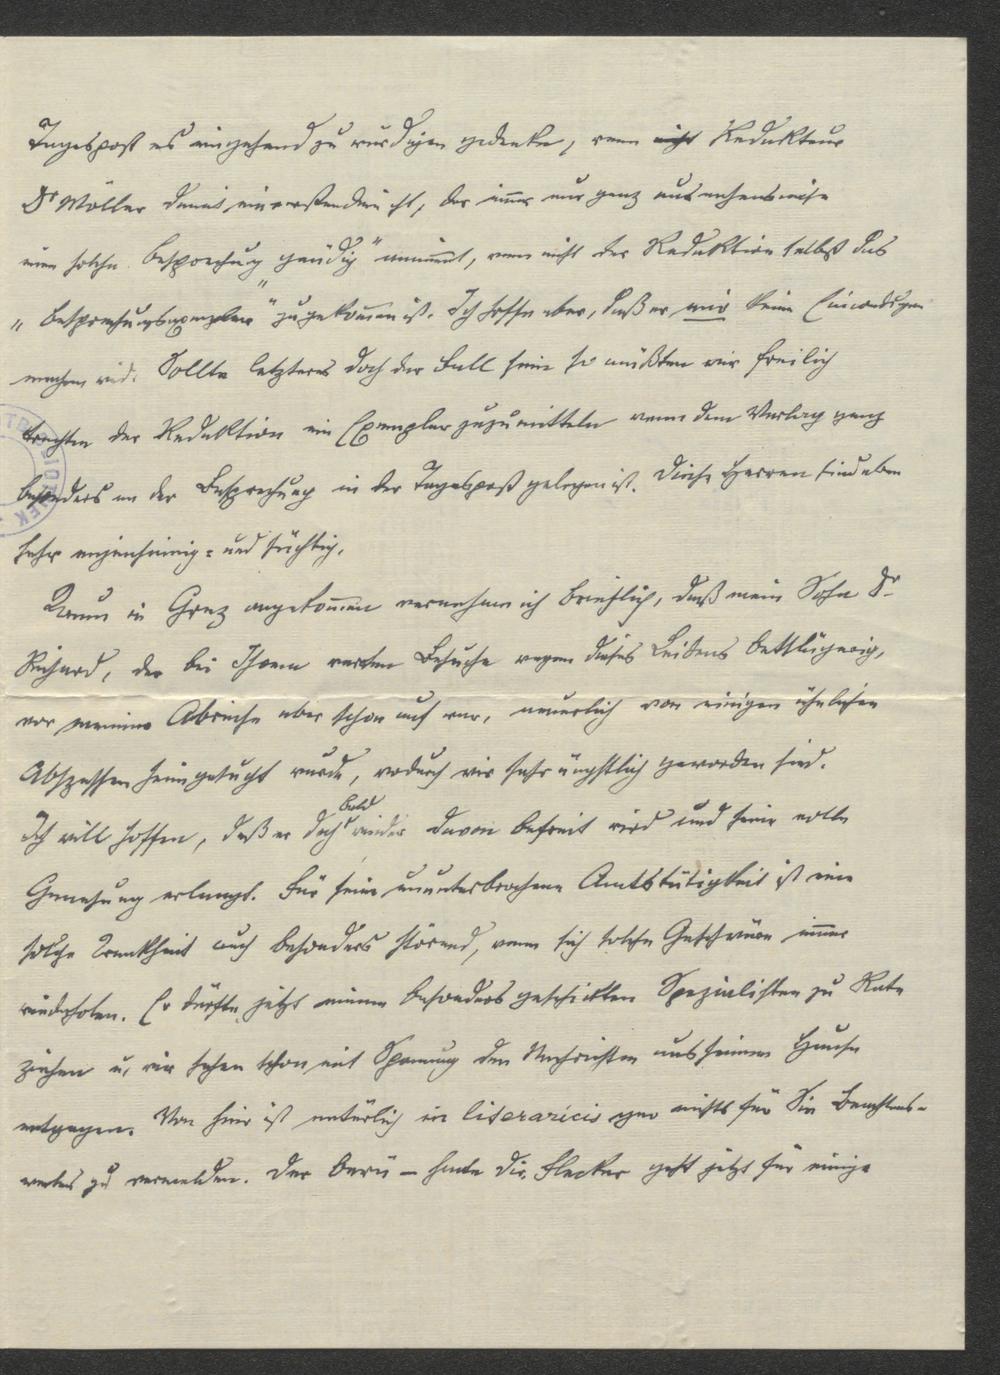 Tagespost es eingehend zu würdigen gedenke, wenn nicht Redakteur
Dr Möller damit einverstanden ist, der immer nur ganz ausnahmsweise
eine solche Besprechung „gnädig" annimmt, wenn nicht der Redaktion selbst das
„Besprechungsexemplar" zugekommen ist. Ich hoffe aber, daß er mir keine Einwendungen
machen wird. Sollte letzteres doch der Fall sein so müßten wir freilich
trachten der Redaktion ein Exemplar zuzumitteln wenn dem Verlag ganz
besonders an der Besprechung in der Tagespost gelegen ist. Diese Herren sind eben
sehr eigensinnig = und süchtig.
Kaum in Graz angekommen vernehme ich brieflich, daß mein Sohn Dr
Richard, der bei Ihrem werten Besuche wegen dieses Leidens bettlägerig,
vor meiner Abreise aber schon auf war, neuerlich von einigen ähnlichen
Abszessen heimgesucht wurde, wodurch wir sehr ängstlich geworden sind.
Ich will hoffen, daß er doch bald wieder davon befreit wird und seine volle
Genesung erlangt. Für seine ununterbrochene Amtstätigkeit ist eine
solche Krankheit auch besonders störend, wenn sich solche Geschwüre immer
wiederholen. Er dürfte jetzt einen besonders geschickten Spezialisten zu Rate
ziehen u. wir sehen schon mit Spannung den Nachrichten aus seinem Hause
entgegen. Von hier ist natürlich in literaricis gar nichts für Sie Beachtens-
wertes zu vermelden. Der berü – hmte Dir. Flecker geht jetzt für einige